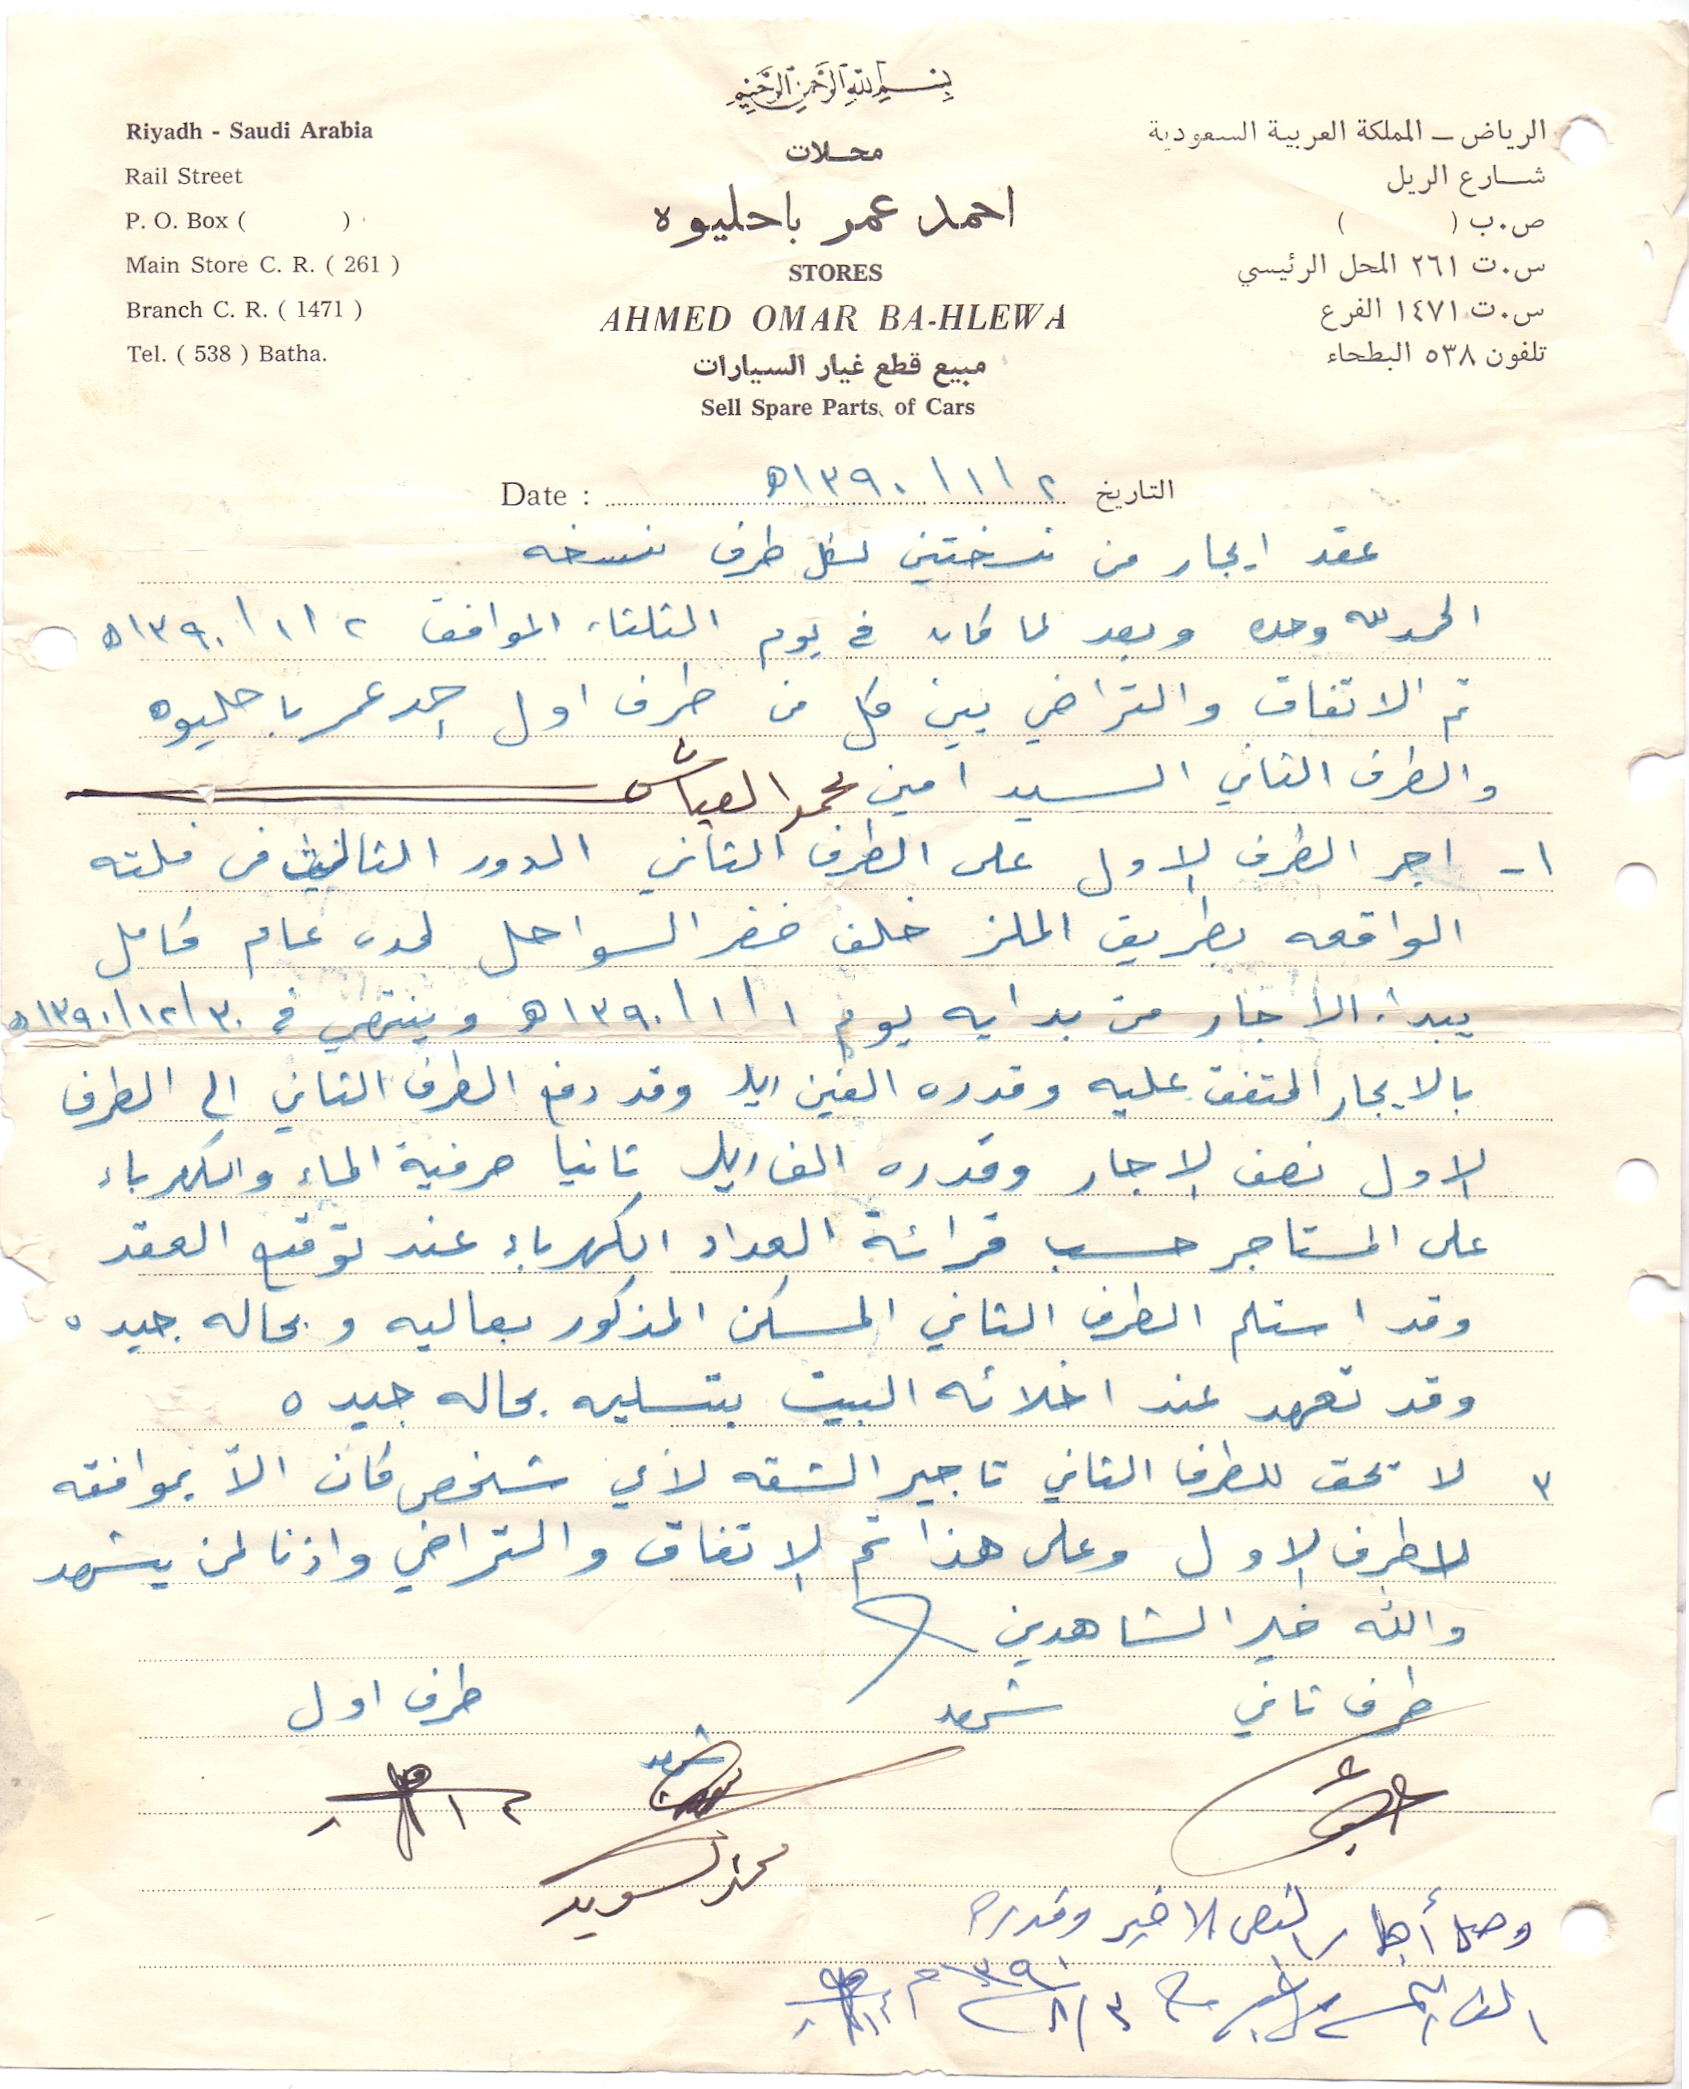 بسم الله الرحمن الرحيم
Riyadh - Saudi Arabia
Rail Street
P. O. Box ( )
Main Store C. R. ( 261 )
Branch C. R. ( 1471 )
Tel. ( 538 ) Batha.
محلات
احمد عمر باحليوه
STORES
AHMED OMAR BA-HLEWA
مبيع قطع غيار السيارات
Sell Spare Parts of Cars
الرياض - المملكة العربية السعودية
شارع الريل
ص.ب ( )
س.ت ٢٦١ المحل الرئيسي
س.ت ١٤٧١ الفرع
تلفون ٥٣٨ البطحاء
Date : ٢/١/١٣٩٠ه التاريخ
عقد ايجار من نسختين لكل طرف نسخه
الحمد لله وحده وبعد لما كان في يوم الثلثاء الموافق ٢/١/١٣٩٠ه
تم الاتفاق والتراضي بين كل من طرف اول احمد عمر باحليوه
والطرف الثاني السيد امين محمد العياش
١- اجر الطرف الاول على الطرف الثاني الدور الثالث من فلته
الواقعه بطريق الملز خلف خفر السواحل لمدة عام كامل
يبدأ الاجار من بدايه يوم ١/١/١٣٩٠ه وينتهي في ٣٠/١٢/١٣٩٠ه
بالايجار المتفق عليه وقدره الفين ريال وقد دفع الطرف الثاني الى الطرف
الاول نصف الاجار وقدره الف ريال ثانيا صرفية الماء والكهرباء
على المستاجر حسب قرائة العداد الكهرباء عند توقيع العقد
وقد استلم الطرف الثاني المسكن المذكور بعاليه وبحاله جيده
وقد تعهد عند اخلائه البيت بتسليمه بحاله جيده
٣ لا يحق للطرف الثاني تاجير الشقه لأي شخص كان الا بموافقه
الطرف الاول وعلى هذا تم الاتفاق والتراضي واذنا لمن يشهد
والله خير الشاهدين
طرف ثاني شهد طرف اول
شهد
محمد السويد
وصل أجار النص الاخير وقدره
الف ٣/٨ ١٣٩٠